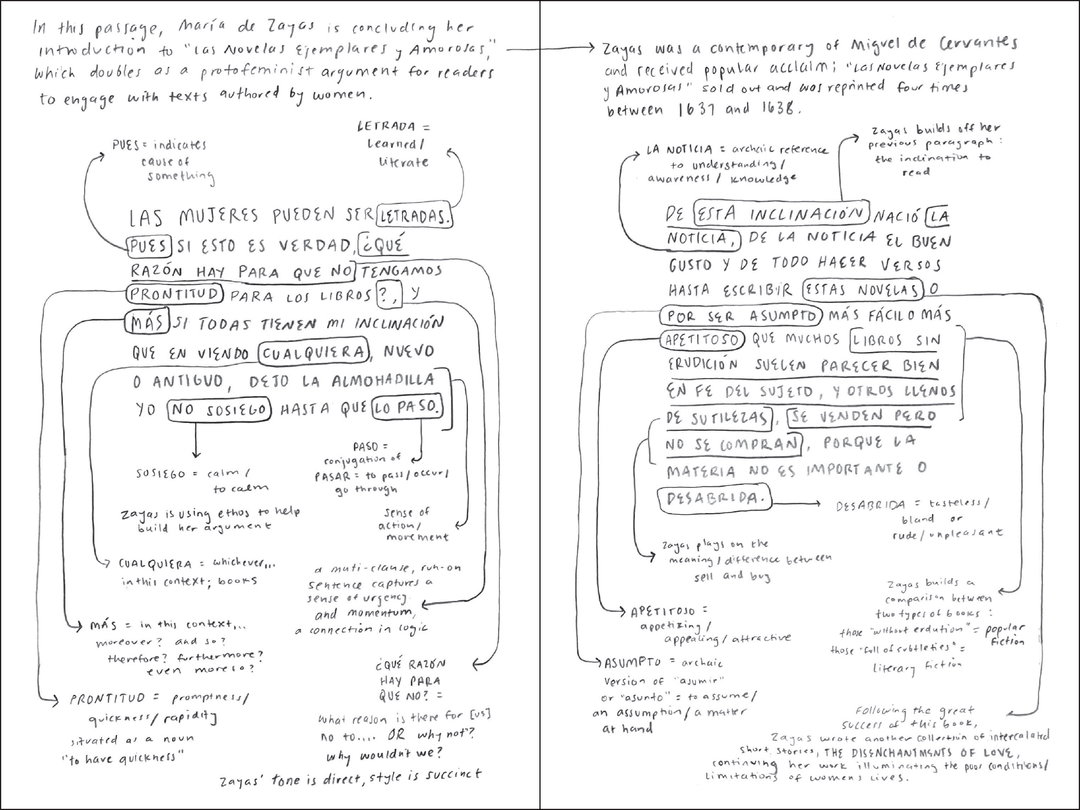 In this passage, María de Zayas is concluding her
introduction to "Las Novelas Ejemplares y Amorosas,"
which doubles as a protofeminist argument for readers
to engage with texts authored by women.
PUES = indicates
cause of
something
LETRADA =
Learned/
literate
LAS MUJERES PUEDEN SER LETRADAS.
PUES SI ESTO ES VERDAD, ¿QUÉ
RAZÓN HAY PARA QUE NO TENGAMOS
PRONTITUD PARA LOS LIBROS?, Y
MÁS SI TODAS TIENEN MI INCLINACIÓN
QUE EN VIENDO CUALQUIERA, NUEVO
O ANTIGUO, DEJO LA ALMOHADILLA
YO NO SOSIEGO HASTA QUE LO PASO.
SOSIEGO = calm/
to calm
Zayas is using ethos to help
build her argument
PASO =
conjugation of
PASAR = to pass/occur/
go through
sense of
action/
movement
CUALQUIERA = whichever...
in this context; books
a multi-clause, run-on
sentence captures a
sense of urgency
and momentum,
a connection in logic
MÁS = in this context,..
moreover? and so?
therefore? furthermore?
even more so?
PRONTITUD = promptness/
quickness/rapidity
situated as a noun
"to have quickness"
¿QUÉ RAZÓN
HAY PARA
QUE NO? =
what reason is there for [us]
no to.... OR why not?
why wouldn't we?
Zayas' tone is direct, style is succinct
Zayas was a contemporary of Miguel de Cervantes
and received popular acclaim; "Las Novelas Ejemplares
y Amorosas" sold out and was reprinted four times
between 1637 and 1638.
LA NOTICIA = archaic reference
to understanding/
awareness/knowledge
Zayas builds off her
previous paragraph:
the inclination to
read
DE ESTA INCLINACIÓN NACIÓ LA
NOTICIA, DE LA NOTICIA EL BUEN
GUSTO Y DE TODO HACER VERSOS
HASTA ESCRIBIR ESTAS NOVELAS O
POR SER ASUMPTO MÁS FÁCIL O MÁS
APETITOSO QUE MUCHOS LIBROS SIN
ERUDICIÓN SUELEN PARECER BIEN
EN FE DEL SUJETO, Y OTROS LLENOS
DE SUTILEZAS, SE VENDEN PERO
NO SE COMPRAN, PORQUE LA
MATERIA NO ES IMPORTANTE O
DESABRIDA.
DESABRIDA = tasteless/
bland or
rude/unpleasant
Zayas plays on the
meaning/difference between
sell and buy
APETITOSO =
appetizing/
appealing/attractive
Zayas builds a
comparison between
two types of books:
those "without erdution" = popular
fiction
those "full of subtleties" =
literary fiction
ASUMPTO = archaic
version of "asumir"
or "asunto" = to assume/
an assumption/a matter
at hand
Following the great
success of this book,
Zayas wrote another collection of intercalated
short stories, THE DISENCHANTMENTS OF LOVE,
continuing her work illuminating the poor conditions/
limitations of women's lives.